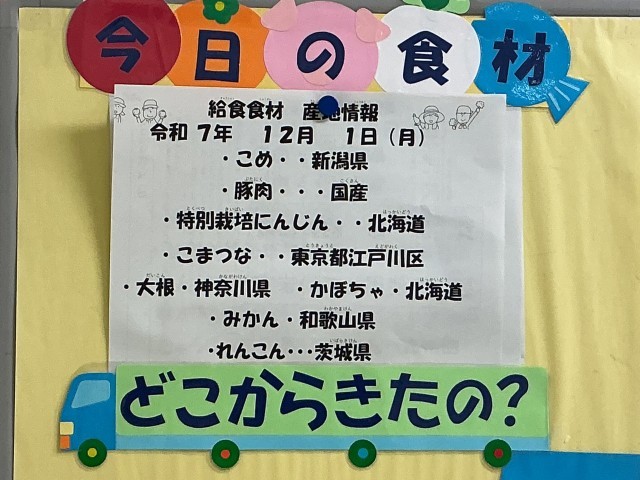 今日の食材
給食食材　産地情報
令和 7年　12月　1日（月）
・こめ・・新潟県
・豚肉・・・国産
・特別栽培にんじん・・北海道
・こまつな・・東京都江戸川区
・大根・神奈川県　・かぼちゃ・北海道
・みかん・和歌山県
・れんこん・・・茨城県
どこからきたの?